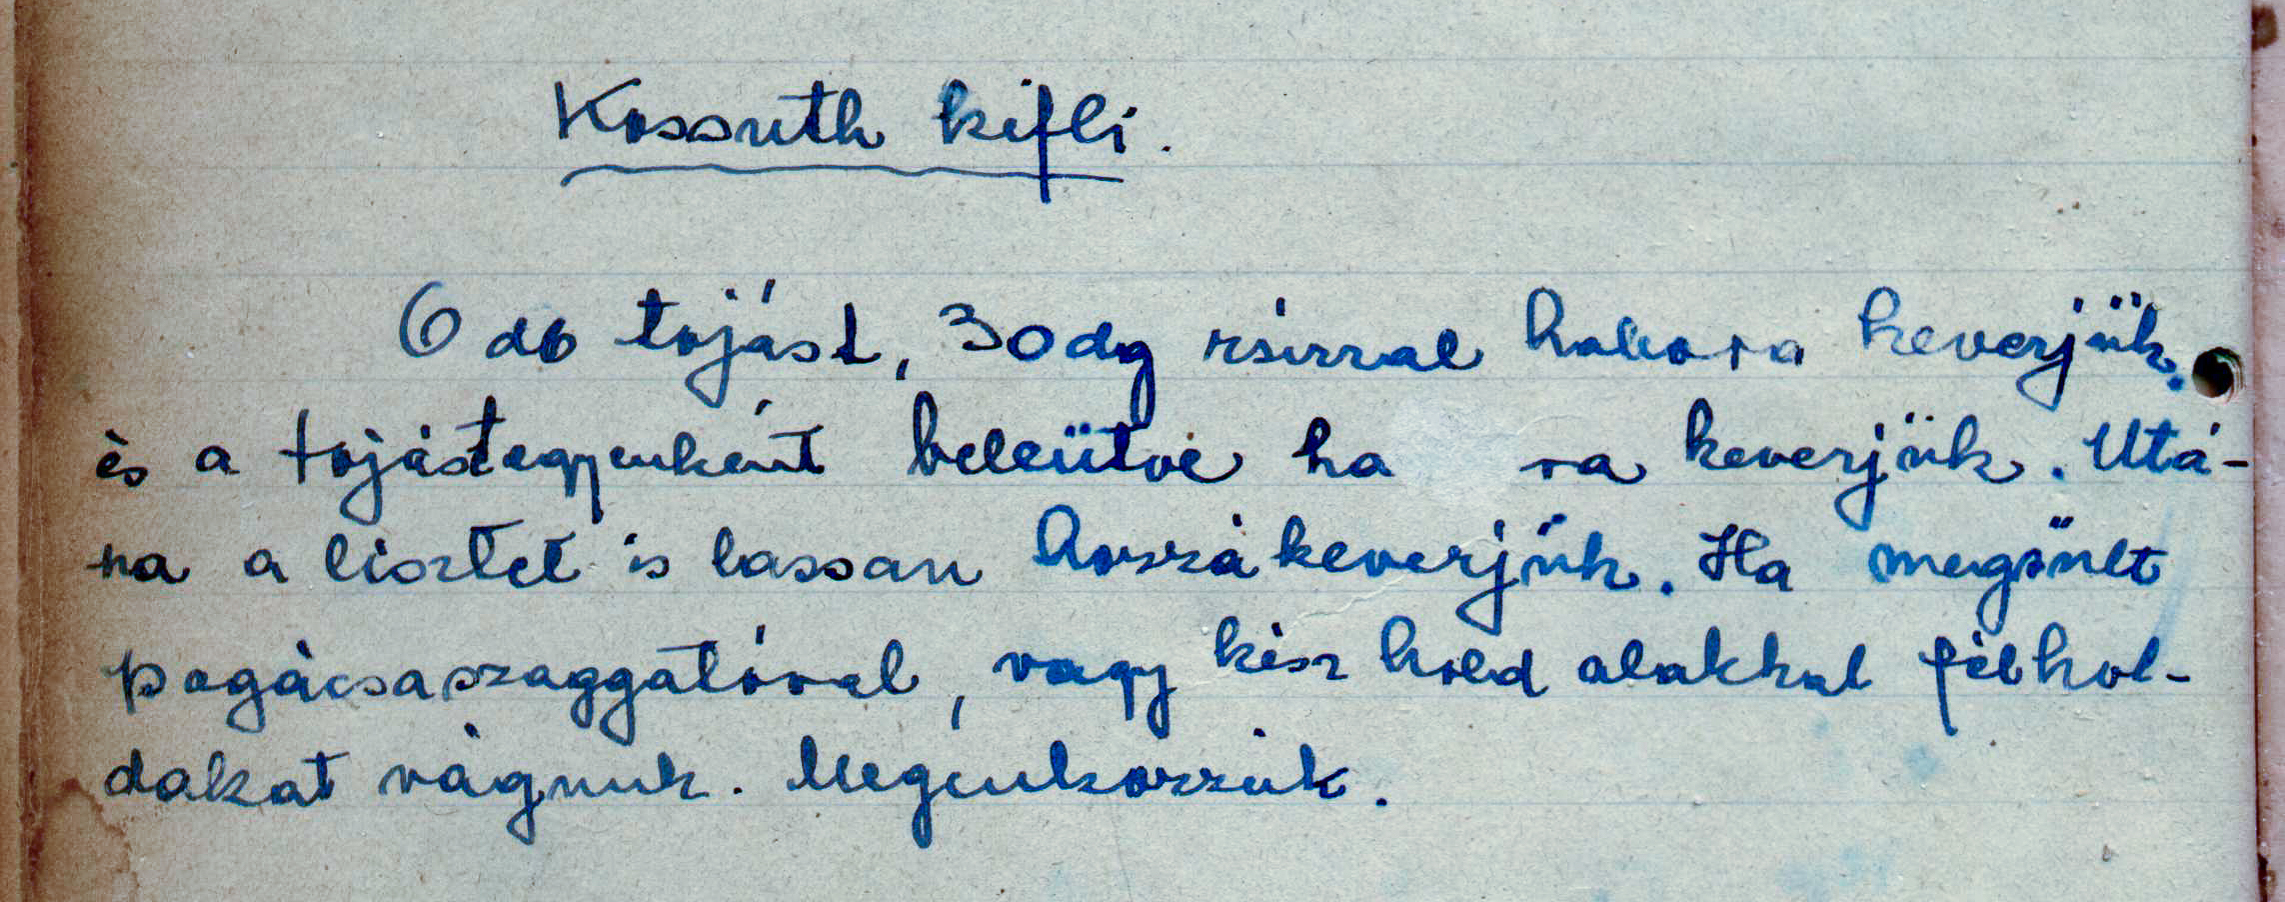 Kossuth kifli.
6 db tojást, 30dg zsirral habosra keverjük.
és a tojást egyenként beleütve ha ra keverjük. Utá-
na a lisztet is lassan hozzákeverjük. Ha megsült
pogácsaszaggatóval, vagy kész hold alakkal félhol-
dakat vágunk. Megcukorzzuk.